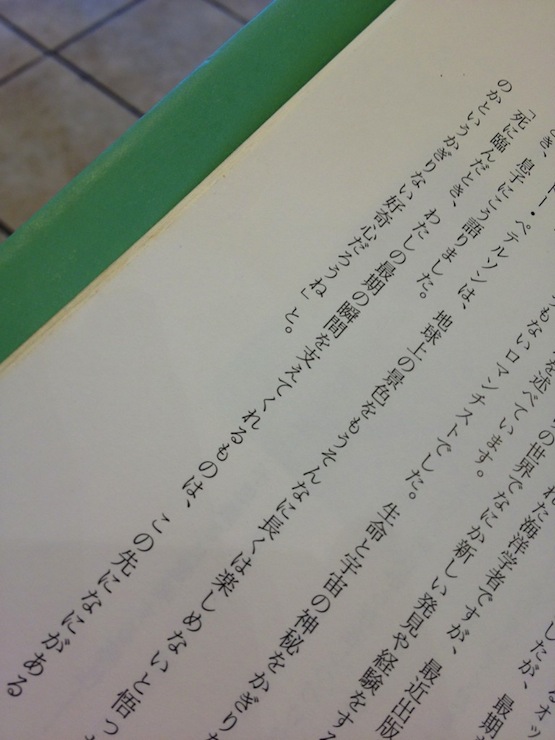 るオッ
したが、最期
れた海洋学者ですが、最近出版
の世界でなにか新しい発見や経験をする
を述べています。
もないロマンチストでした。生命と宇宙の神秘をかぎり
トー・ペテルソンは、地球上の景色をもうそんなに長くは楽しめないと悟った
き、息子にこう語りました。
「死に臨んだとき、わたしの最期の瞬間を支えてくれるものは、この先になにがある
のかというかぎりない好奇心だろうね」と。